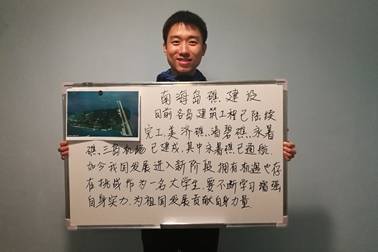 南海岛礁建设
目前各岛建筑工程已陆续
完工，美济礁、渚碧礁、永暑
礁，三岛机场已建成，其中永暑礁已通航
如今我国发展进入新阶段 拥有机遇也存
在挑战 作为一名大学生 要不断学习增强
自身实力，为祖国发展贡献自身力量